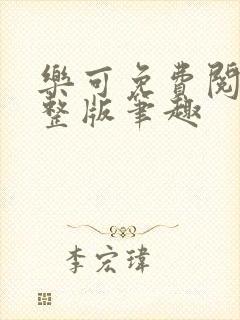 樂可免費閱
整版筆趣
李宏瑋